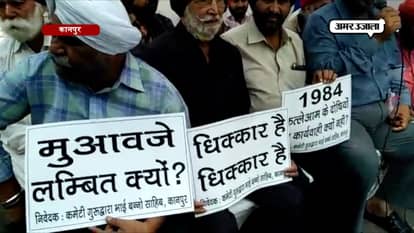 कानपुर
अमर उजाला
मुआवजे
लम्बित क्यों?
निवेदक : कमेटी गुरुद्वारा भाई बन्नो साहिब, कानपुर
धिक्कार है
धिक्कार है
कमेटी गुरुद्वारा भाई बन्नो साहिब
1984
के दोषियों
कार्यवाही क्यों नहीं?